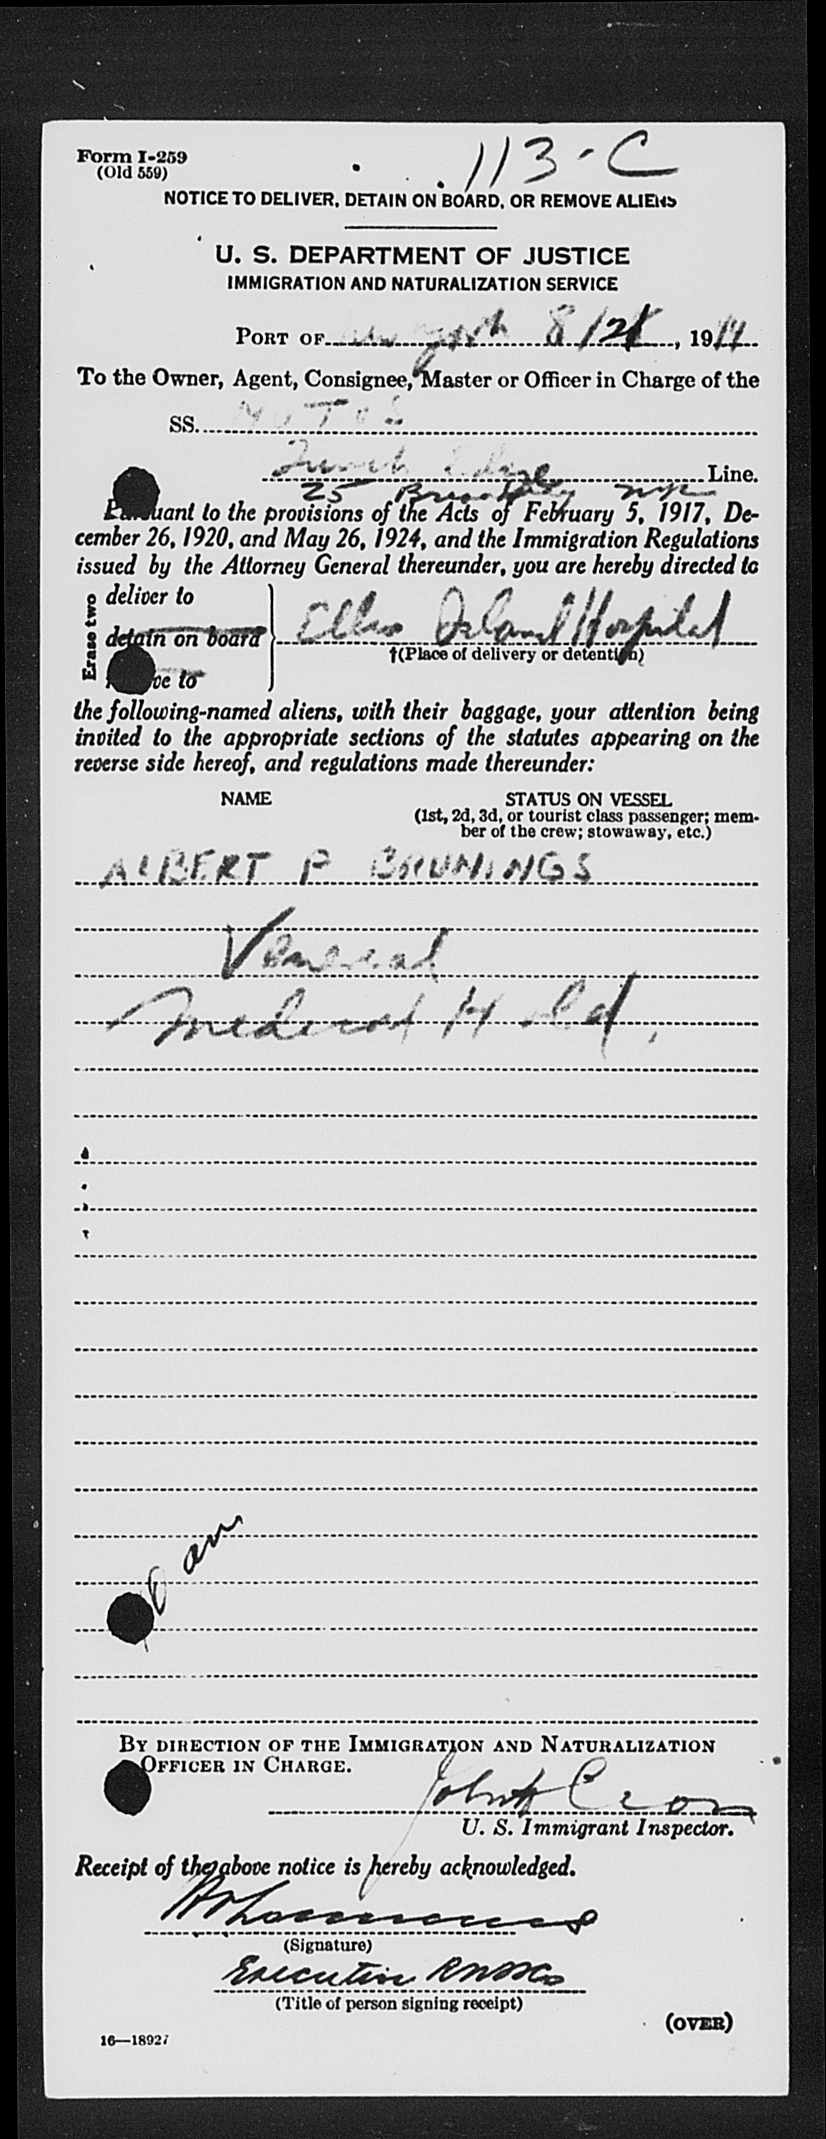 Form I-259
(Old 559)
113-C
NOTICE TO DELIVER, DETAIN ON BOARD, OR REMOVE ALIENS
U. S. DEPARTMENT OF JUSTICE
IMMIGRATION AND NATURALIZATION SERVICE
PORT OF New York 8/21, 1944
To the Owner, Agent, Consignee, Master or Officer in Charge of the
SS.
Line.
25 Broadway NYC
Pursuant to the provisions of the Acts of February 5, 1917, De-
cember 26, 1920, and May 26, 1924, and the Immigration Regulations
issued by the Attorney General thereunder, you are hereby directed to
Erase two
deliver to
detain on board Ellis Island Hospital
†(Place of delivery or detention)
ve to
the following-named aliens, with their baggage, your attention being
invited to the appropriate sections of the statutes appearing on the
reverse side hereof, and regulations made thereunder:
NAME STATUS ON VESSEL
(1st, 2d, 3d, or tourist class passenger; mem-
ber of the crew; stowaway, etc.)
ALBERT P BRUNINGS
Venereal
Medical Hold.
am
BY DIRECTION OF THE IMMIGRATION AND NATURALIZATION
OFFICER IN CHARGE.
John Cron
U. S. Immigrant Inspector.
Receipt of the above notice is hereby acknowledged.
(Signature)
Executive
(Title of person signing receipt)
(OVER)
16—18927